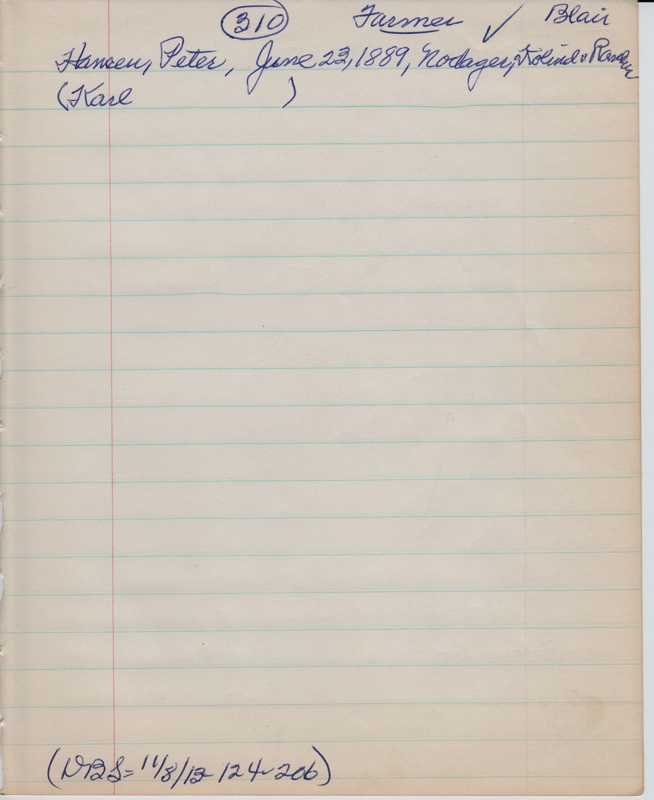 310 Farmer ✓ Blair
Hansen, Peter, June 23, 1889, Nodager, Kolind v Randers
(Karl )
(DBS= 11/8/13- 124-206)